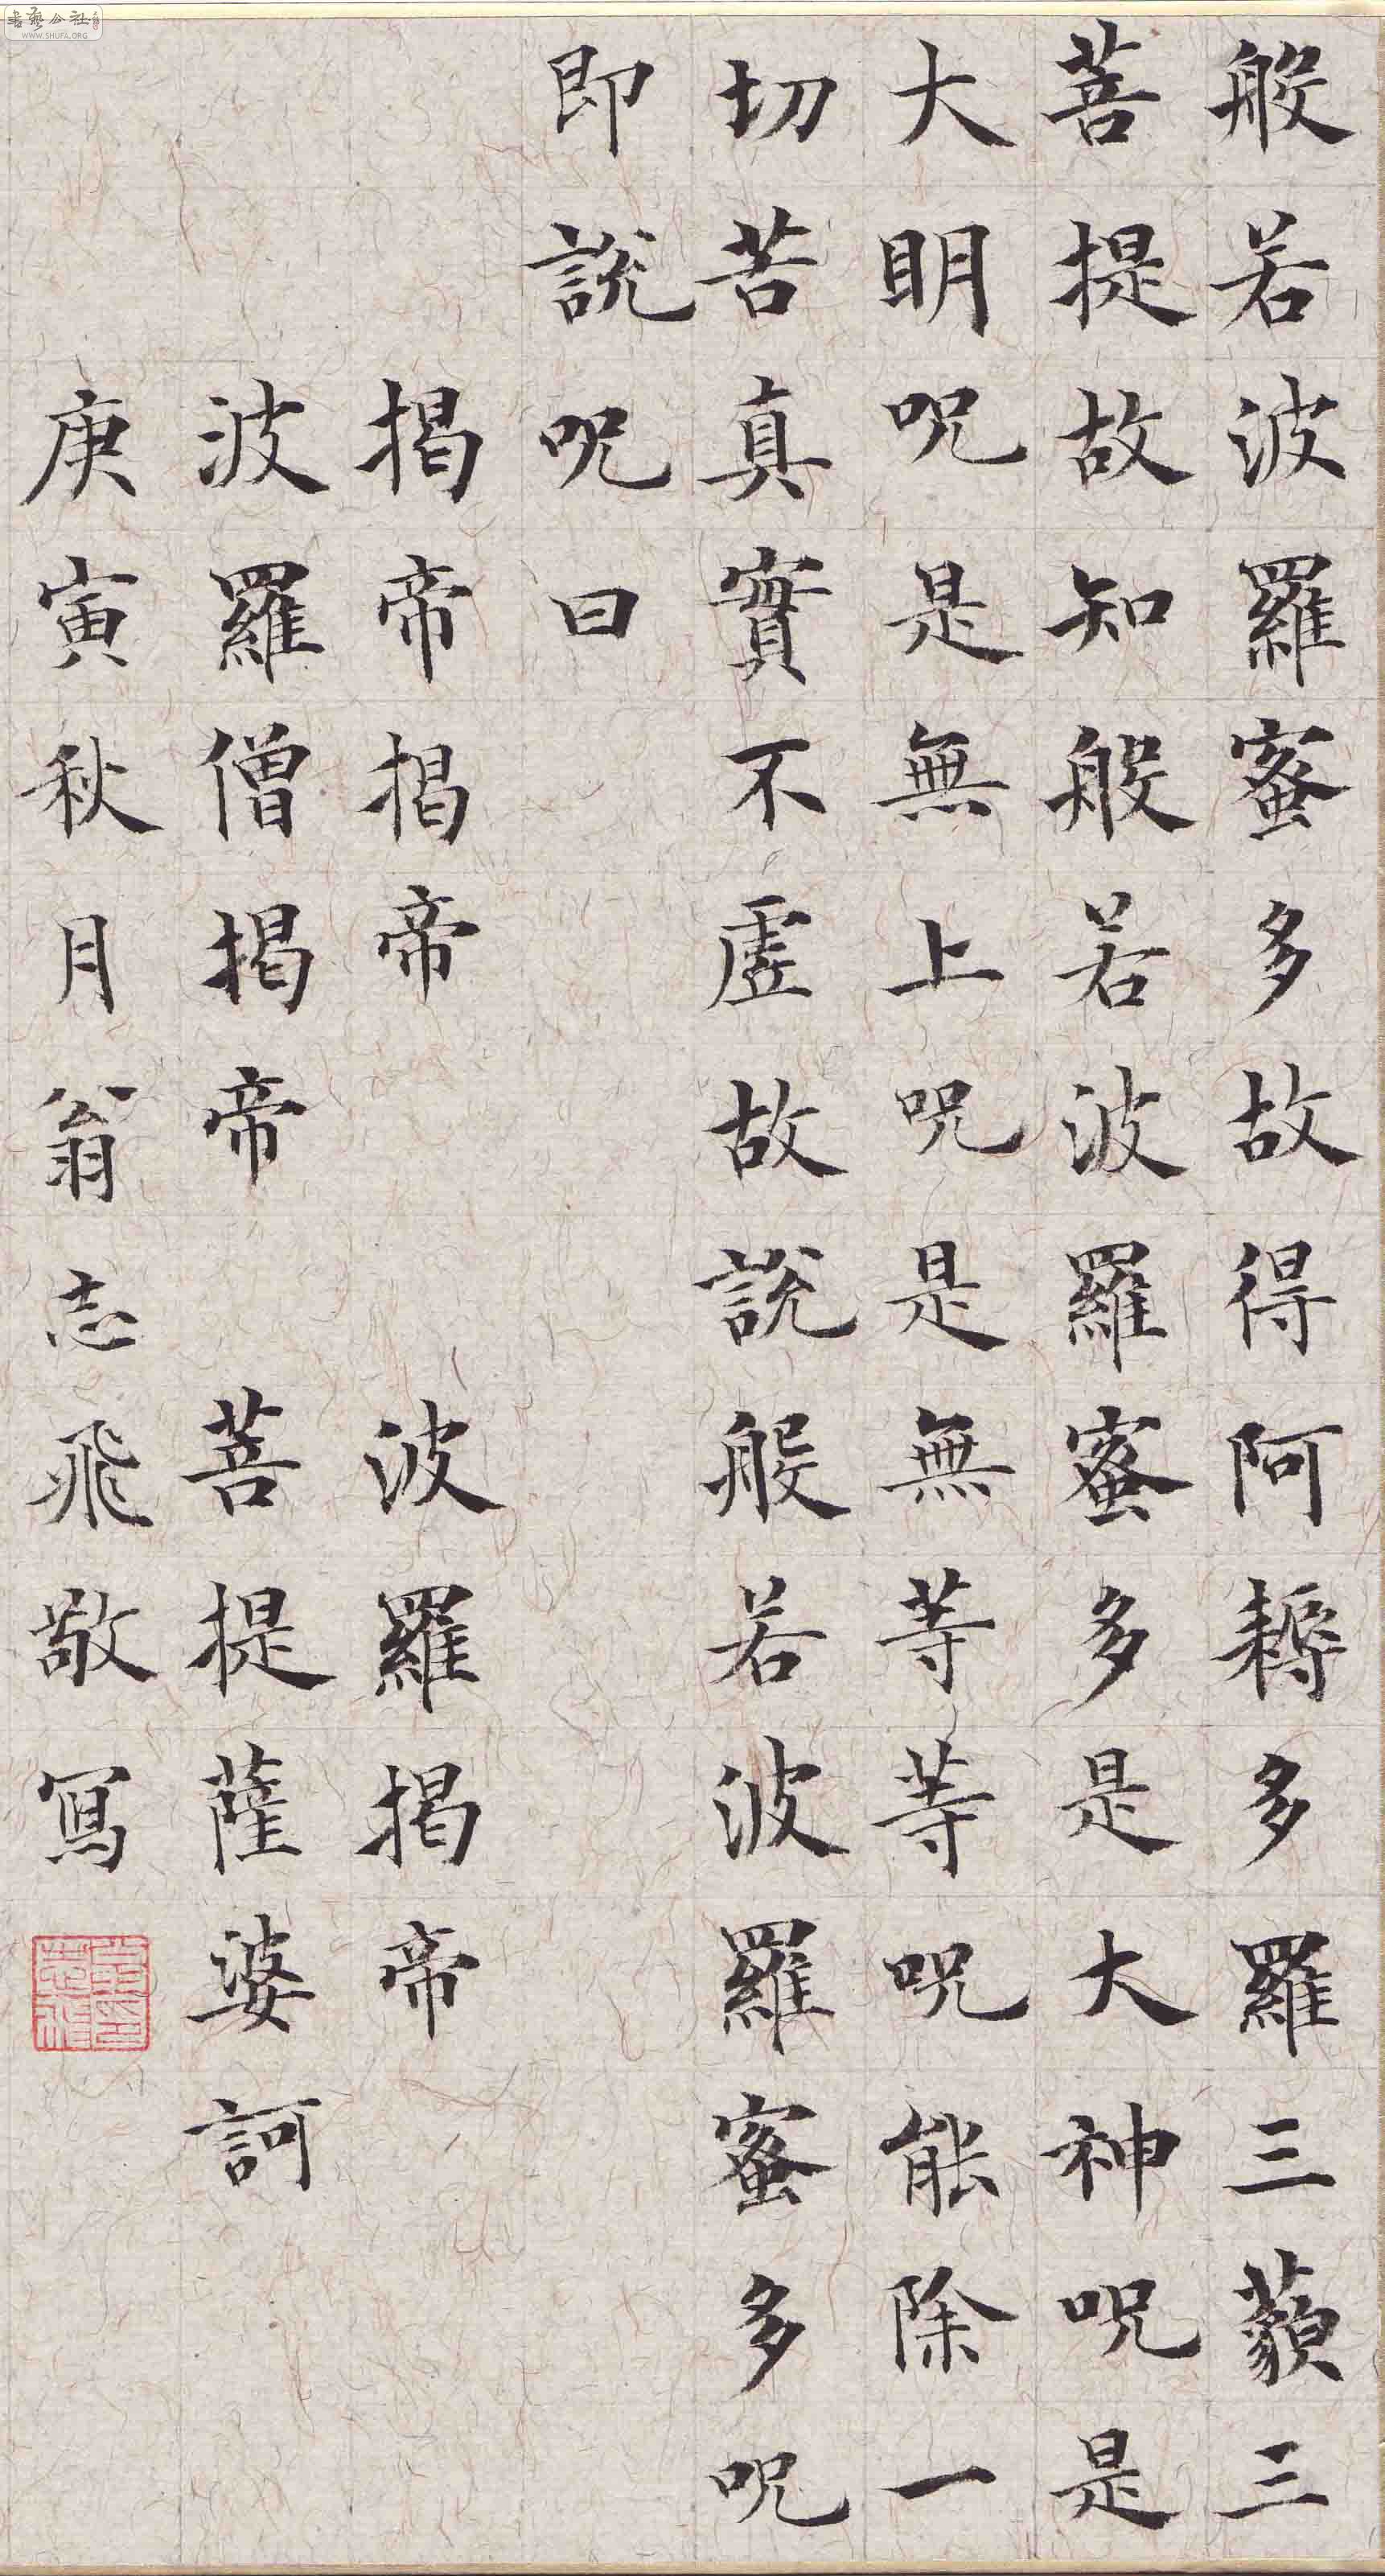 般若波羅蜜多故得阿耨多羅三藐三
菩提故知般若波羅蜜多是大神呪是
大明呪是無上呪是無等等呪能除一
切苦真實不虛故說般若波羅蜜多呪
即說呪曰
揭帝揭帝 波羅揭帝
波羅僧揭帝 菩提薩婆訶
庚寅秋月翁志飛敬寫
書藝公社
WWW.SHUFA.ORG